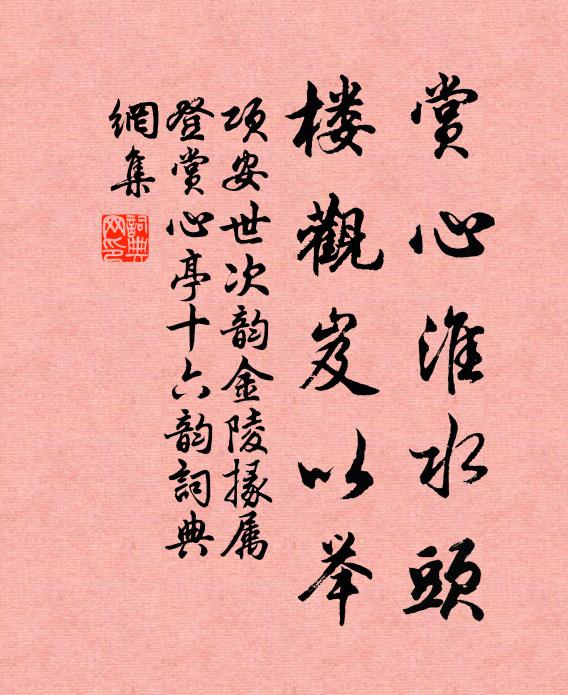 赏心淮水頭
楼觀岌以举
项安世次韵金陵掾属
登赏心亭十六韵詞典
網集
詞典网印